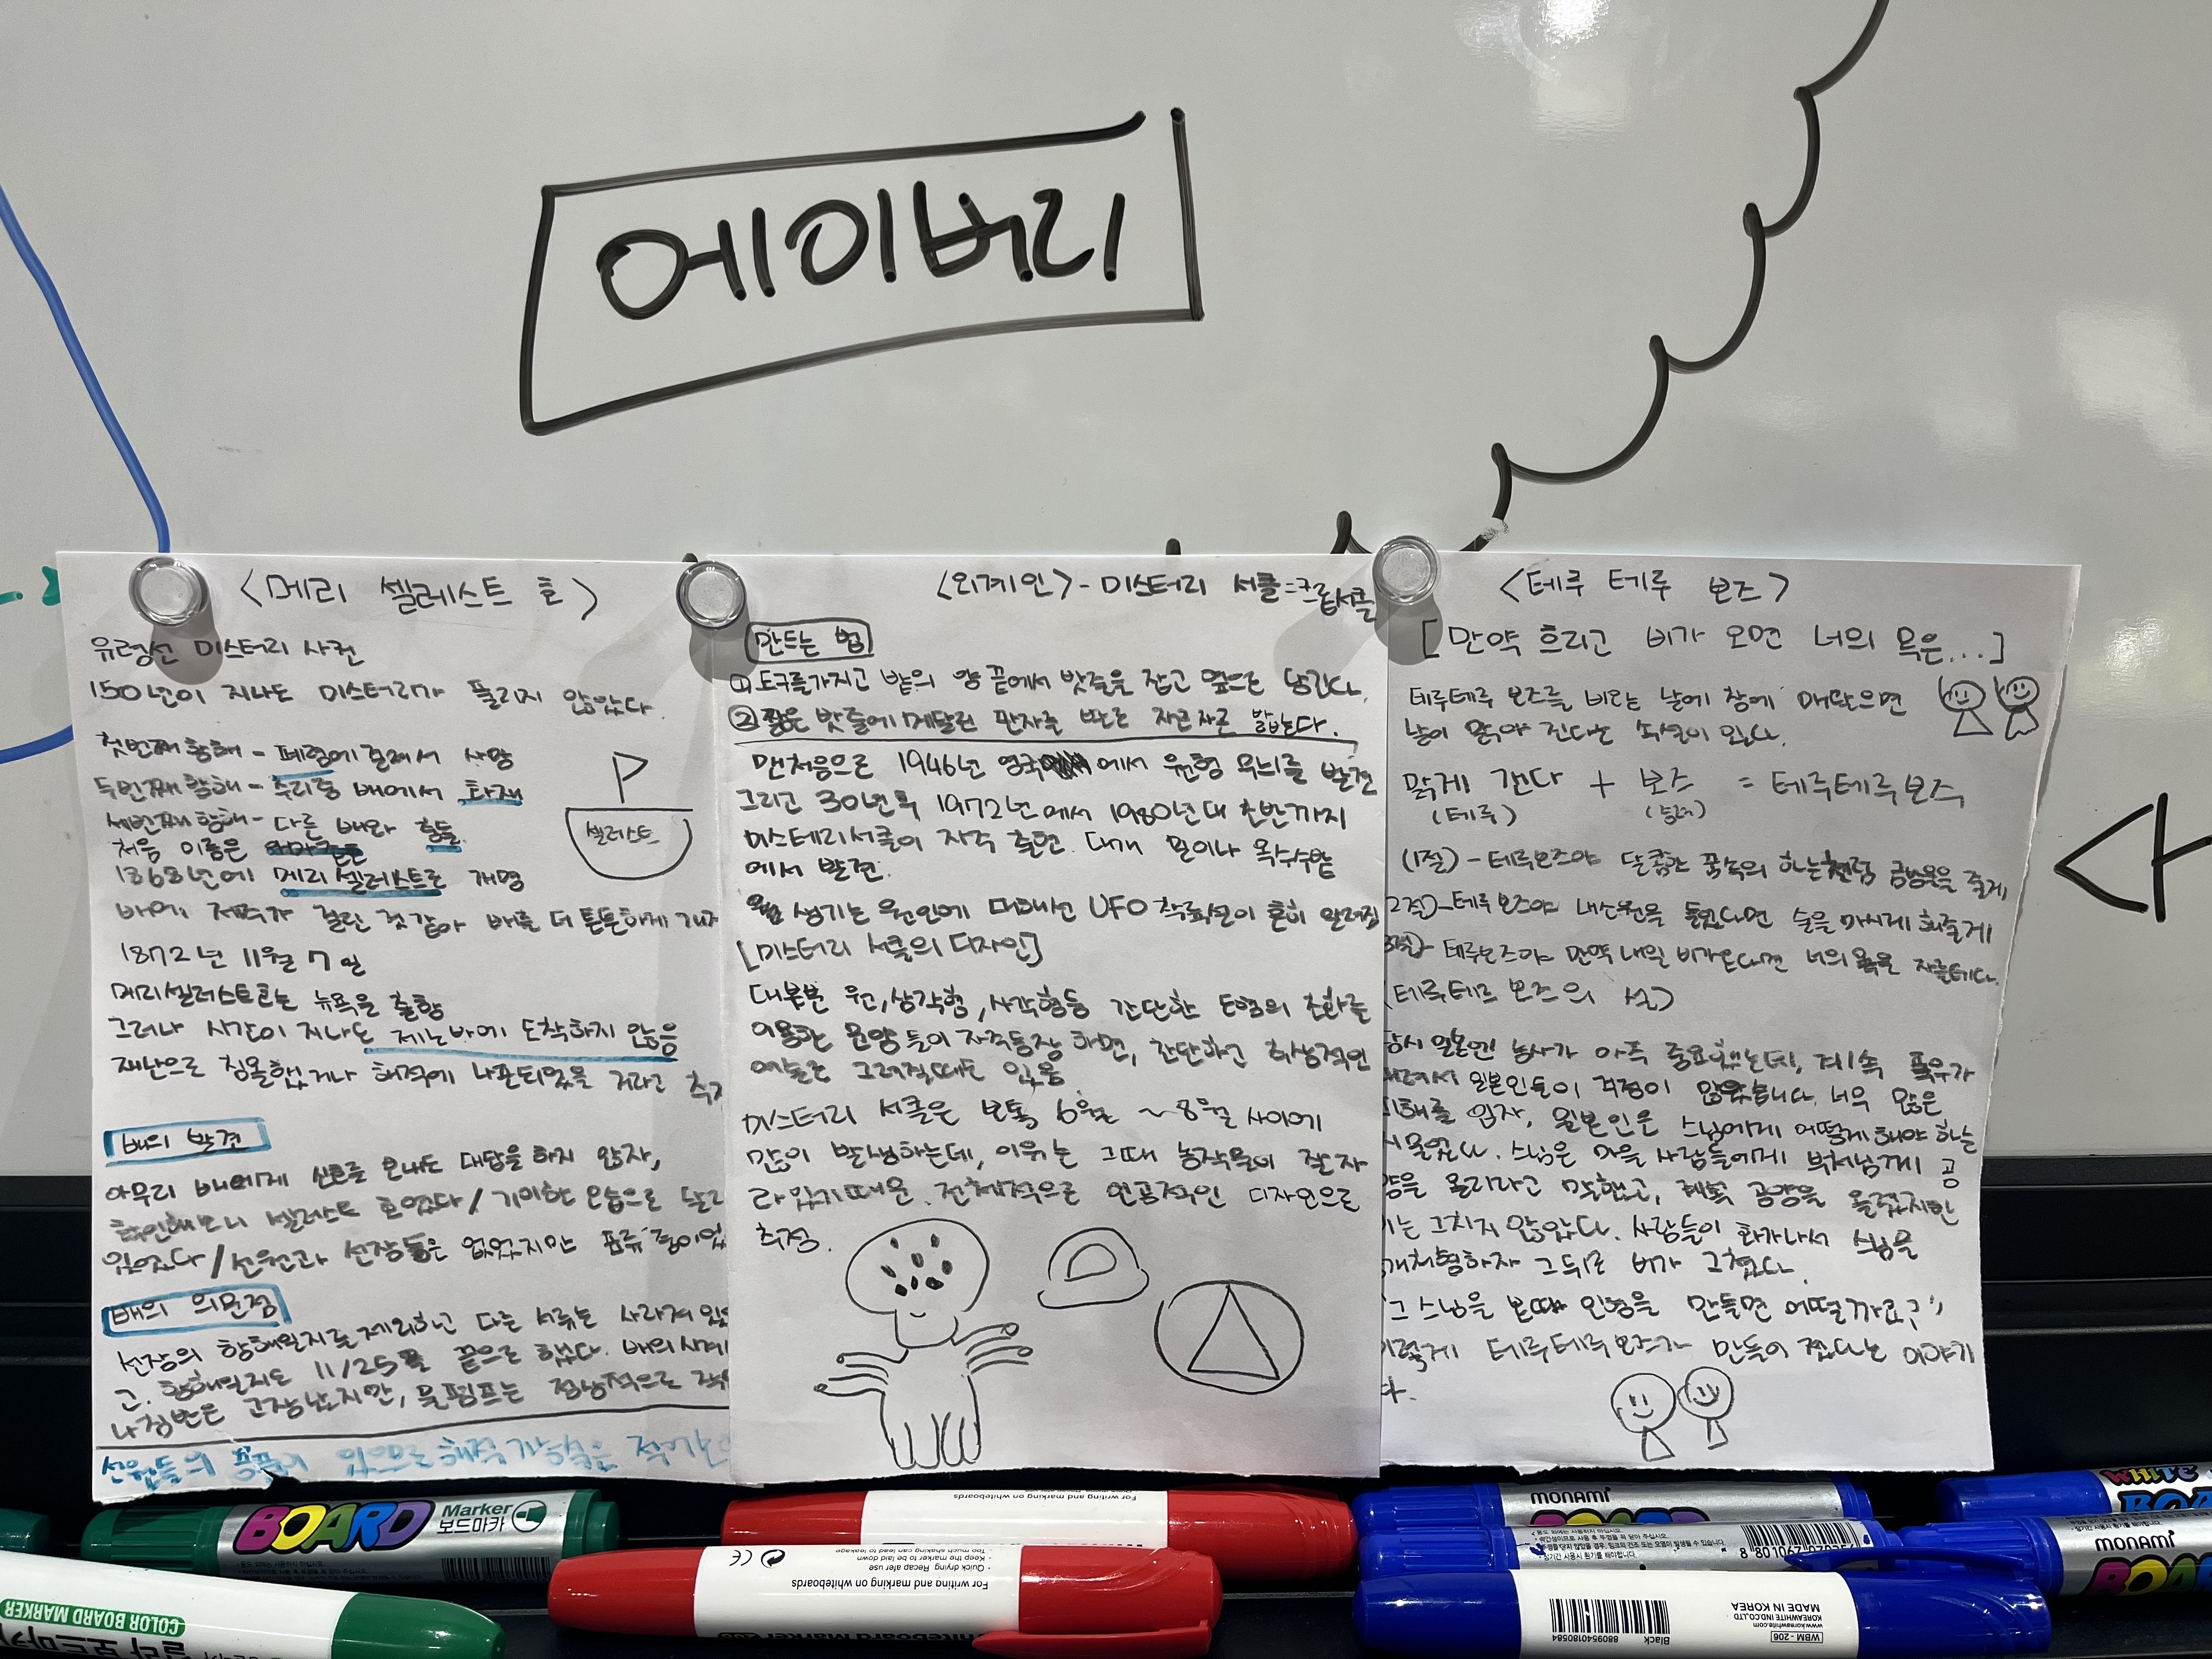 에이버리
<메리 셀레스트 호>
유령선 미스터리 사건
150년이 지나도 미스터리가 풀리지 않았다.
첫번째 항해 - 폐렴에 걸려서 사망
두번째 항해 - 수리중 배에서 화재
세번째 항해 - 다른 배와 충돌
처음 이름은
1868년에 메리 셀레스트로 개명
셀레스트
배에 저주가 걸린 것 같아 배를 더 튼튼하게
1872년 11월 7일
메리셀레스트호는 뉴욕을 출항
그러나 시간이 지나도 제노바에 도착하지 않음
재난으로 침몰했거나 해적에 나포되었을 거라고
배의 발견
아무리 배에게 신호를 보내도 대답을 하지 않자,
확인해보니 셀레스트 호였다 / 기이한 모습으로
있었다 / 선원과 선장들은 없었지만
배의 의문점
선장의 항해일지를 제외하고 다른 서류는 사라져
고. 항해일지도 11/25을 끝으로 했다. 배의 시계
나침반은 고장났지만, 물펌프는 정상적으로
선원들의 있으므로 해적 가능성은
<외계인> - 미스터리 서클=크롭서클
만드는 법
① 도구를가지고 밭의 양 끝에서 밧줄을 잡고 옆으로 당긴다.
② 짧은 밧줄에 메달린 판자로 차근차근 밟는다.
맨처음으로 1946년 영국에서 원형 무늬를 발견
그리고 30년후 1972년에서 1980년대 초반까지
미스테리서클이 자주 출현. 대개 밀이나 옥수수밭
에서 발견.
생기는 원인에 대해선 UFO 착륙설이 흔히 알려짐
[미스터리 서클의 디자인]
대부분 원, 삼각형, 사각형등 간단한 도형의 조화를
이용한 문양들이 자주등장 하면, 간단하고 허상적인
예술로 그려질때도 있음
미스터리 서클은 보통 6월 ~ 8월 사이에
많이 발생하는데, 이유는 그때 농작물이 잘 자
라있기때문. 전체적으로 인공적인 디자인으로
추정.
<테루 테루 보즈>
[만약 흐리고 비가 오면 너의 목은...]
테루테루 보즈를 비오는 날에 창에 매달으면
날이 맑아 진다는 속설이 있다.
맑게 갠다 + 보즈 = 테루테루보즈
(테루) (승려)
(1절) - 테루보즈야 달콤한 꿈속의 하늘처럼 줄게
2절) - 테루보즈야 내소원을 들었다면 술을 마시게 해줄게
테루보즈야 만약 내일 비가온다면 너의 목을 자를테다.
(테루테루 보즈의 설)
당시 일본엔 농사가 아주 중요했는데, 계속 폭우가
일본인들이 걱정이 많았습니다. 너무 많은
피해를 입자, 일본인은 스님에게 어떻게 해야 하는
지 물었다. 스님은 마을 사람들에게 부처님께 공
양을 올리라고 말했고, 계속 공양을 올렸지만
비는 그치지 않았다. 사람들이 화가나서 스님을
처형하자 그 뒤로 비가 그쳤다.
"그 스님을 본따 인형을 만들면 어떨까요?"
이렇게 테루테루보즈가 만들어 졌다는 이야기
다.
BOARD Marker 보드마카
COLOR BOARD MARKER
For writing and marking on whiteboards
For writing and marking on whiteboards
Quick drying. Recap after use
Keep the marker to be laid down
Too much shaking can lead to leakage
CE
monami
monami
WHITE
Black
8809540180584
WBM-206
KOREAWHITE IND.CO.,LTD
www.koreawhite.com
MADE IN KOREA